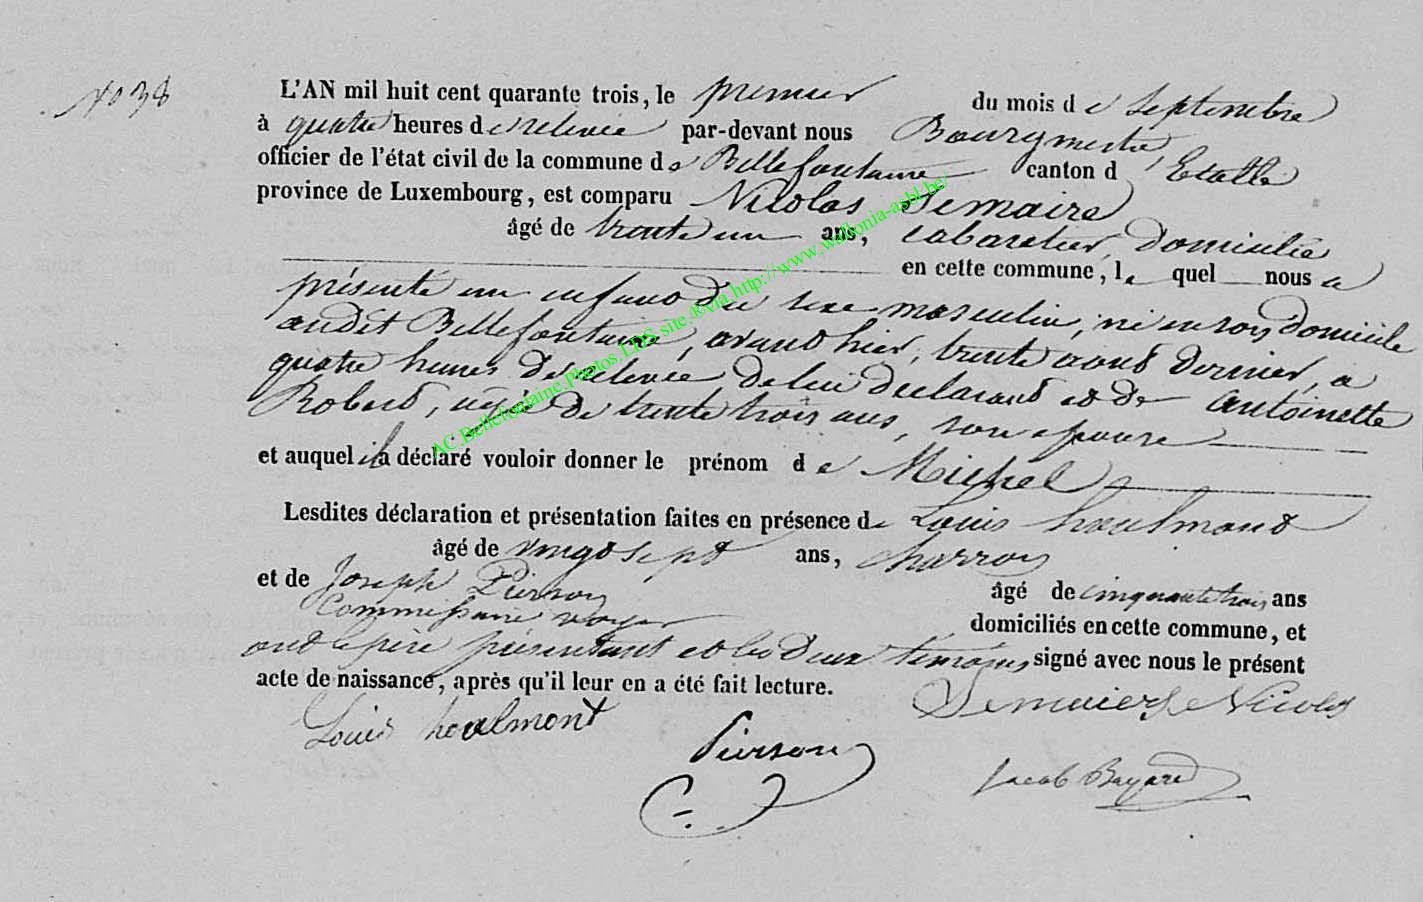 No 38
L'AN mil huit cent quarante trois, le premier du mois de Septembre
à quatre heures de relevée par-devant nous Bourgmestre,
officier de l'état civil de la commune de Bellefontaine canton d'Etalle
province de Luxembourg, est comparu Nicolas Semaire
âgé de trente un ans, cabaretier, domicilié
en cette commune, le quel nous a
présenté un enfant du sexe masculin, né en son domicile
audit Bellefontaine, avant hier, trente aout dernier, a
quatre heures de relevée, de lui declarant et de Antoinette
Robert, agée de trente trois ans, son epouse
et auquel il a déclaré vouloir donner le prénom de Michel
Lesdites déclaration et présentation faites en présence de Louis houlmont
âgé de vingt sept ans, charron
et de Joseph Pierson âgé de cinquante trois ans
Commissaire voyer domiciliés en cette commune, et
ont le père présentant et les deux témoins signé avec nous le présent
acte de naissance, après qu'il leur en a été fait lecture.
Louis houlmont Nicolas
Pierson Jacob Bayard
AC.Bellefontaine.photos.LDS site ® via http://www.wallonia-asbl.be/